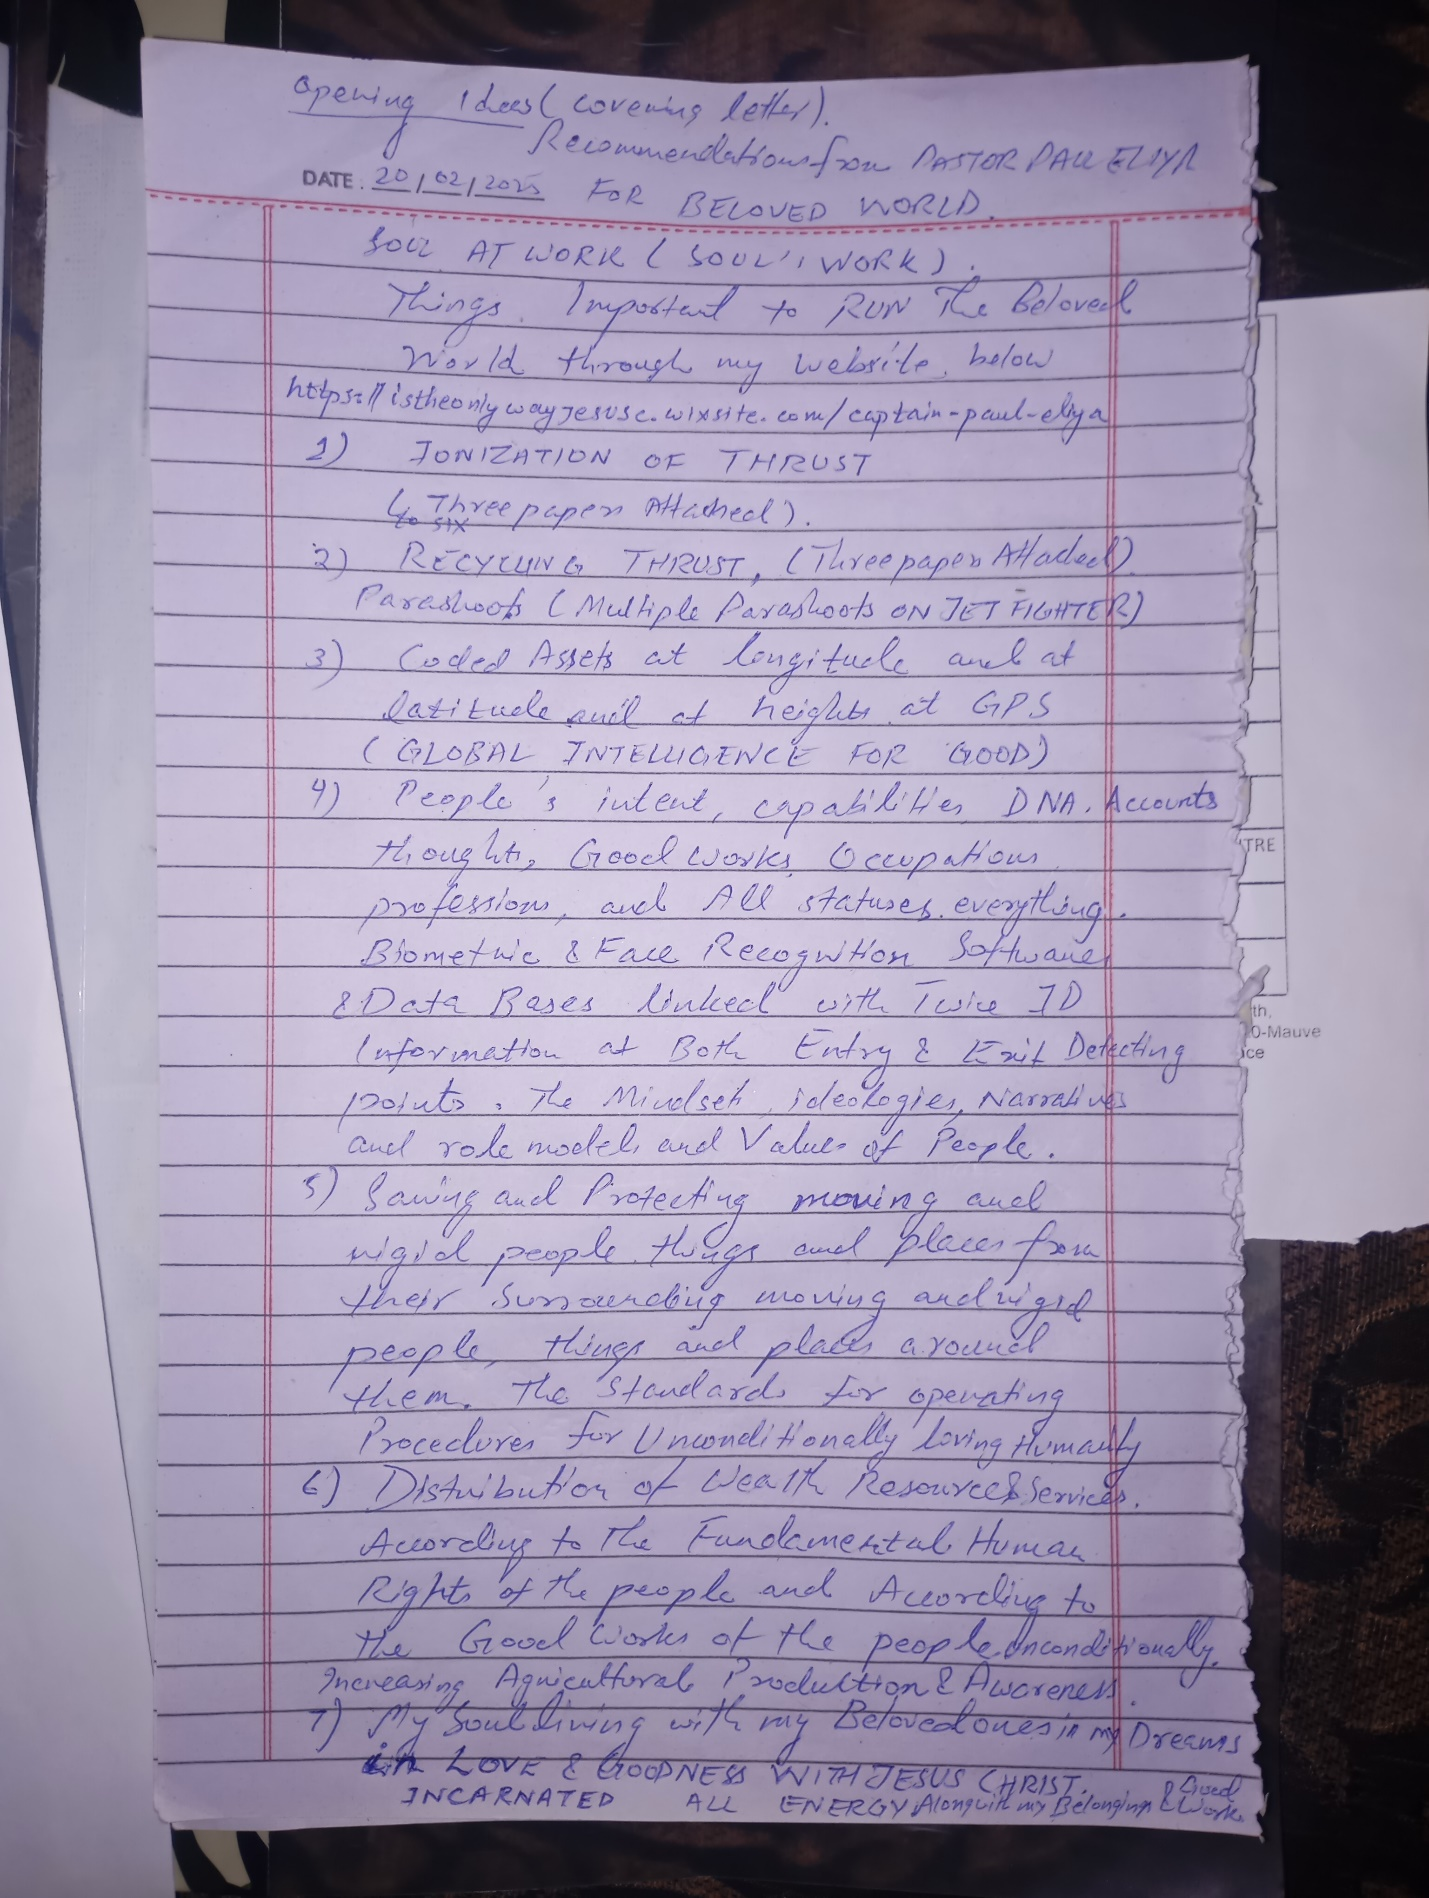 Opening Idees (covering letter).
Recommendations from PASTOR PAUL ELIYA
DATE: 20/02/2025 FOR BELOVED WORLD.
SOUL AT WORK (SOUL'S WORK).
Things Important to RUN The Beloved
World through my website, below
https://istheonlywayjesusc.wixsite.com/captain-paul-eliya
1) IONIZATION OF THRUST
(Three papers Attached).
to SIX
2) RECYCLING THRUST, (Three papers Attached).
Parashoots (Multiple Parashoots ON JET FIGHTER)
3) Coded Assets at longitude and at
latitude and at heights at GPS
(GLOBAL INTELLIGENCE FOR GOOD)
4) People's intent, capabilities, DNA, Accounts
thoughts, Good Works, Occupations
professions, and All statuses, everything.
Biometric & Face Recognition Softwares
& Data Bases linked with Twice ID
Information at Both Entry & Exit Detecting
points. The Mindsets, ideologies, Narratives
and role models and Values of People.
5) Saving and Protecting moving and
rigid people things and places from
their surrounding moving and rigid
people, things and places around
them. The Standards for operating
Procedures for Unconditionally loving Humanity
6) Distribution of Wealth Resources & Services.
According to The Fundamental Human
Rights of the people and According to
the Good Works of the people unconditionally.
Increasing Agricultural Production & Awareness.
7) My Soul living with my Beloved ones in my Dreams
in LOVE & GOODNESS WITH JESUS CHRIST.
INCARNATED ALL ENERGY, Alongwith my Belongings & Good Works
TRE
th,
0-Mauve
ice